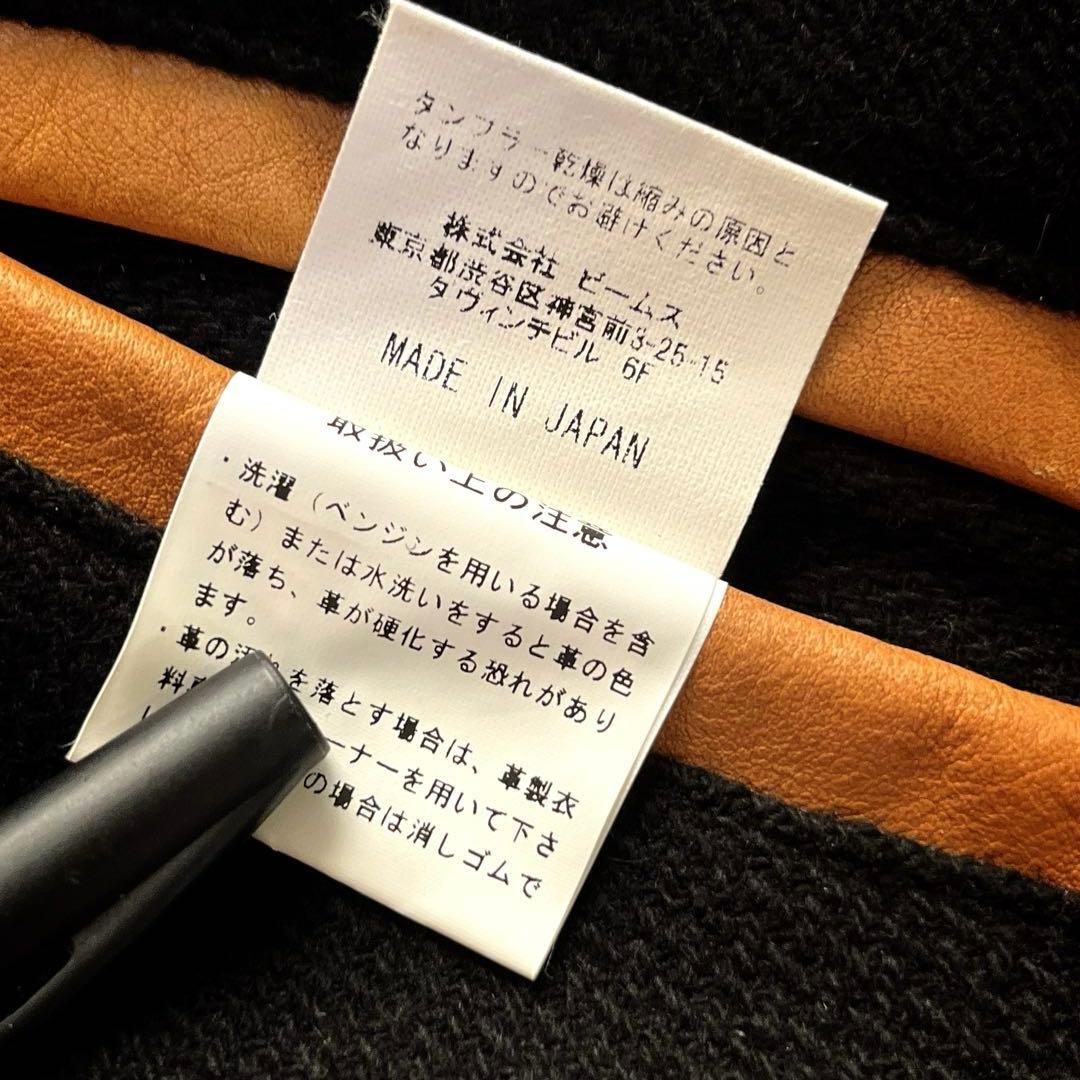 タンブラー乾燥は縮みの原因と
なりますのでお避けください。
株式会社 ビームス
東京都渋谷区神宮前3-25-15
ダヴィンチビル 6F
MADE IN JAPAN
取扱い上の注意
・洗濯（ベンジンを用いる場合を含
む）または水洗いをすると革の色
が落ち、革が硬化する恐れがあり
ます。
・革の汚れを落とす場合は、革製衣
料 ーナーを用いて下さ
い の場合は消しゴムで